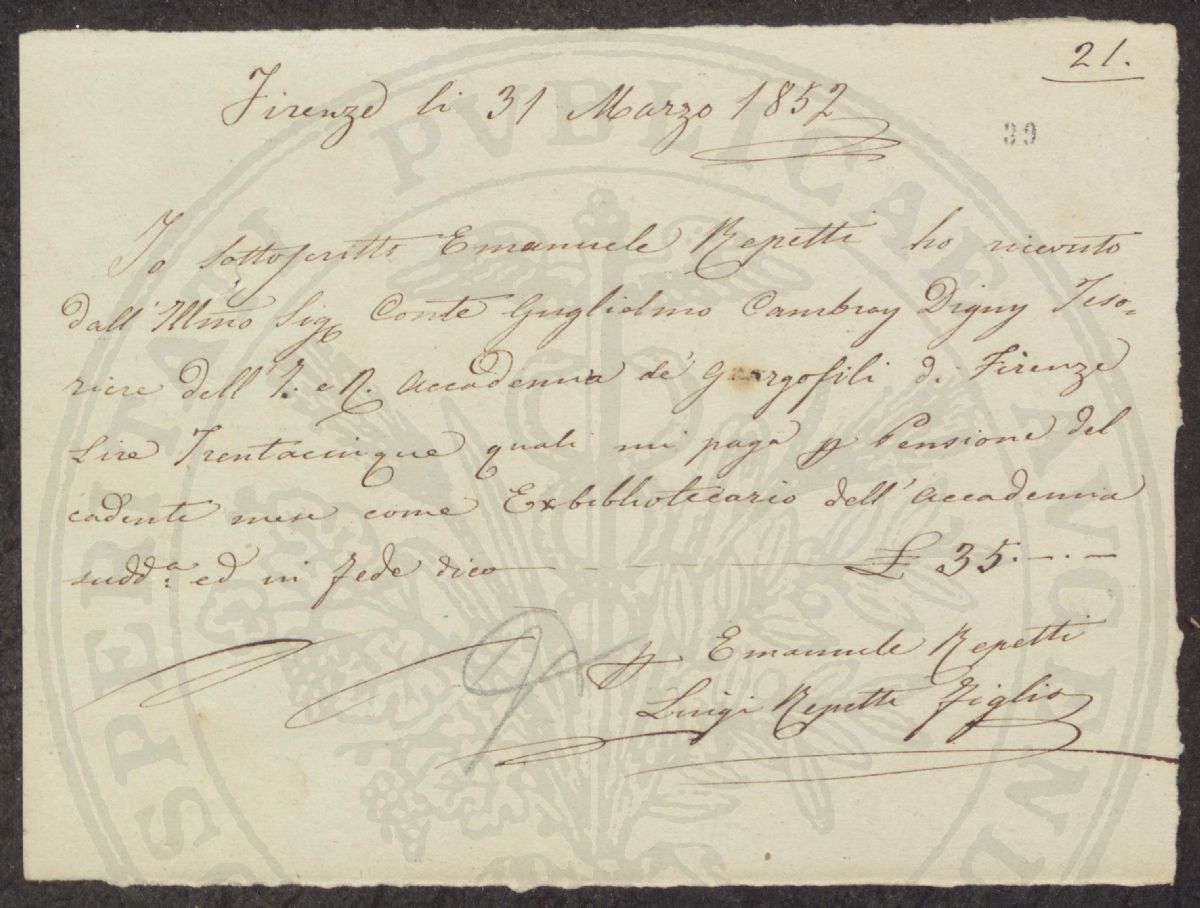 21.
Firenze li 31 Marzo 1852
39
Io sottoscritto Emanuele Repetti ho ricevuto
dall'Illmo Sig Conte Guglielmo Cambray Digny Teso=
riere dell'I. e R. Accademia de' Georgofili di Firenze
Lire Trentacinque quali mi paga p Pensione del
cadente mese come Exbibliotecario dell'Accademia
sudd.a ed in fede dico — — — £ 35.—.—
p Emanuele Repetti
Luigi Repetti Figlio
PVBLICAE
SPERITATI